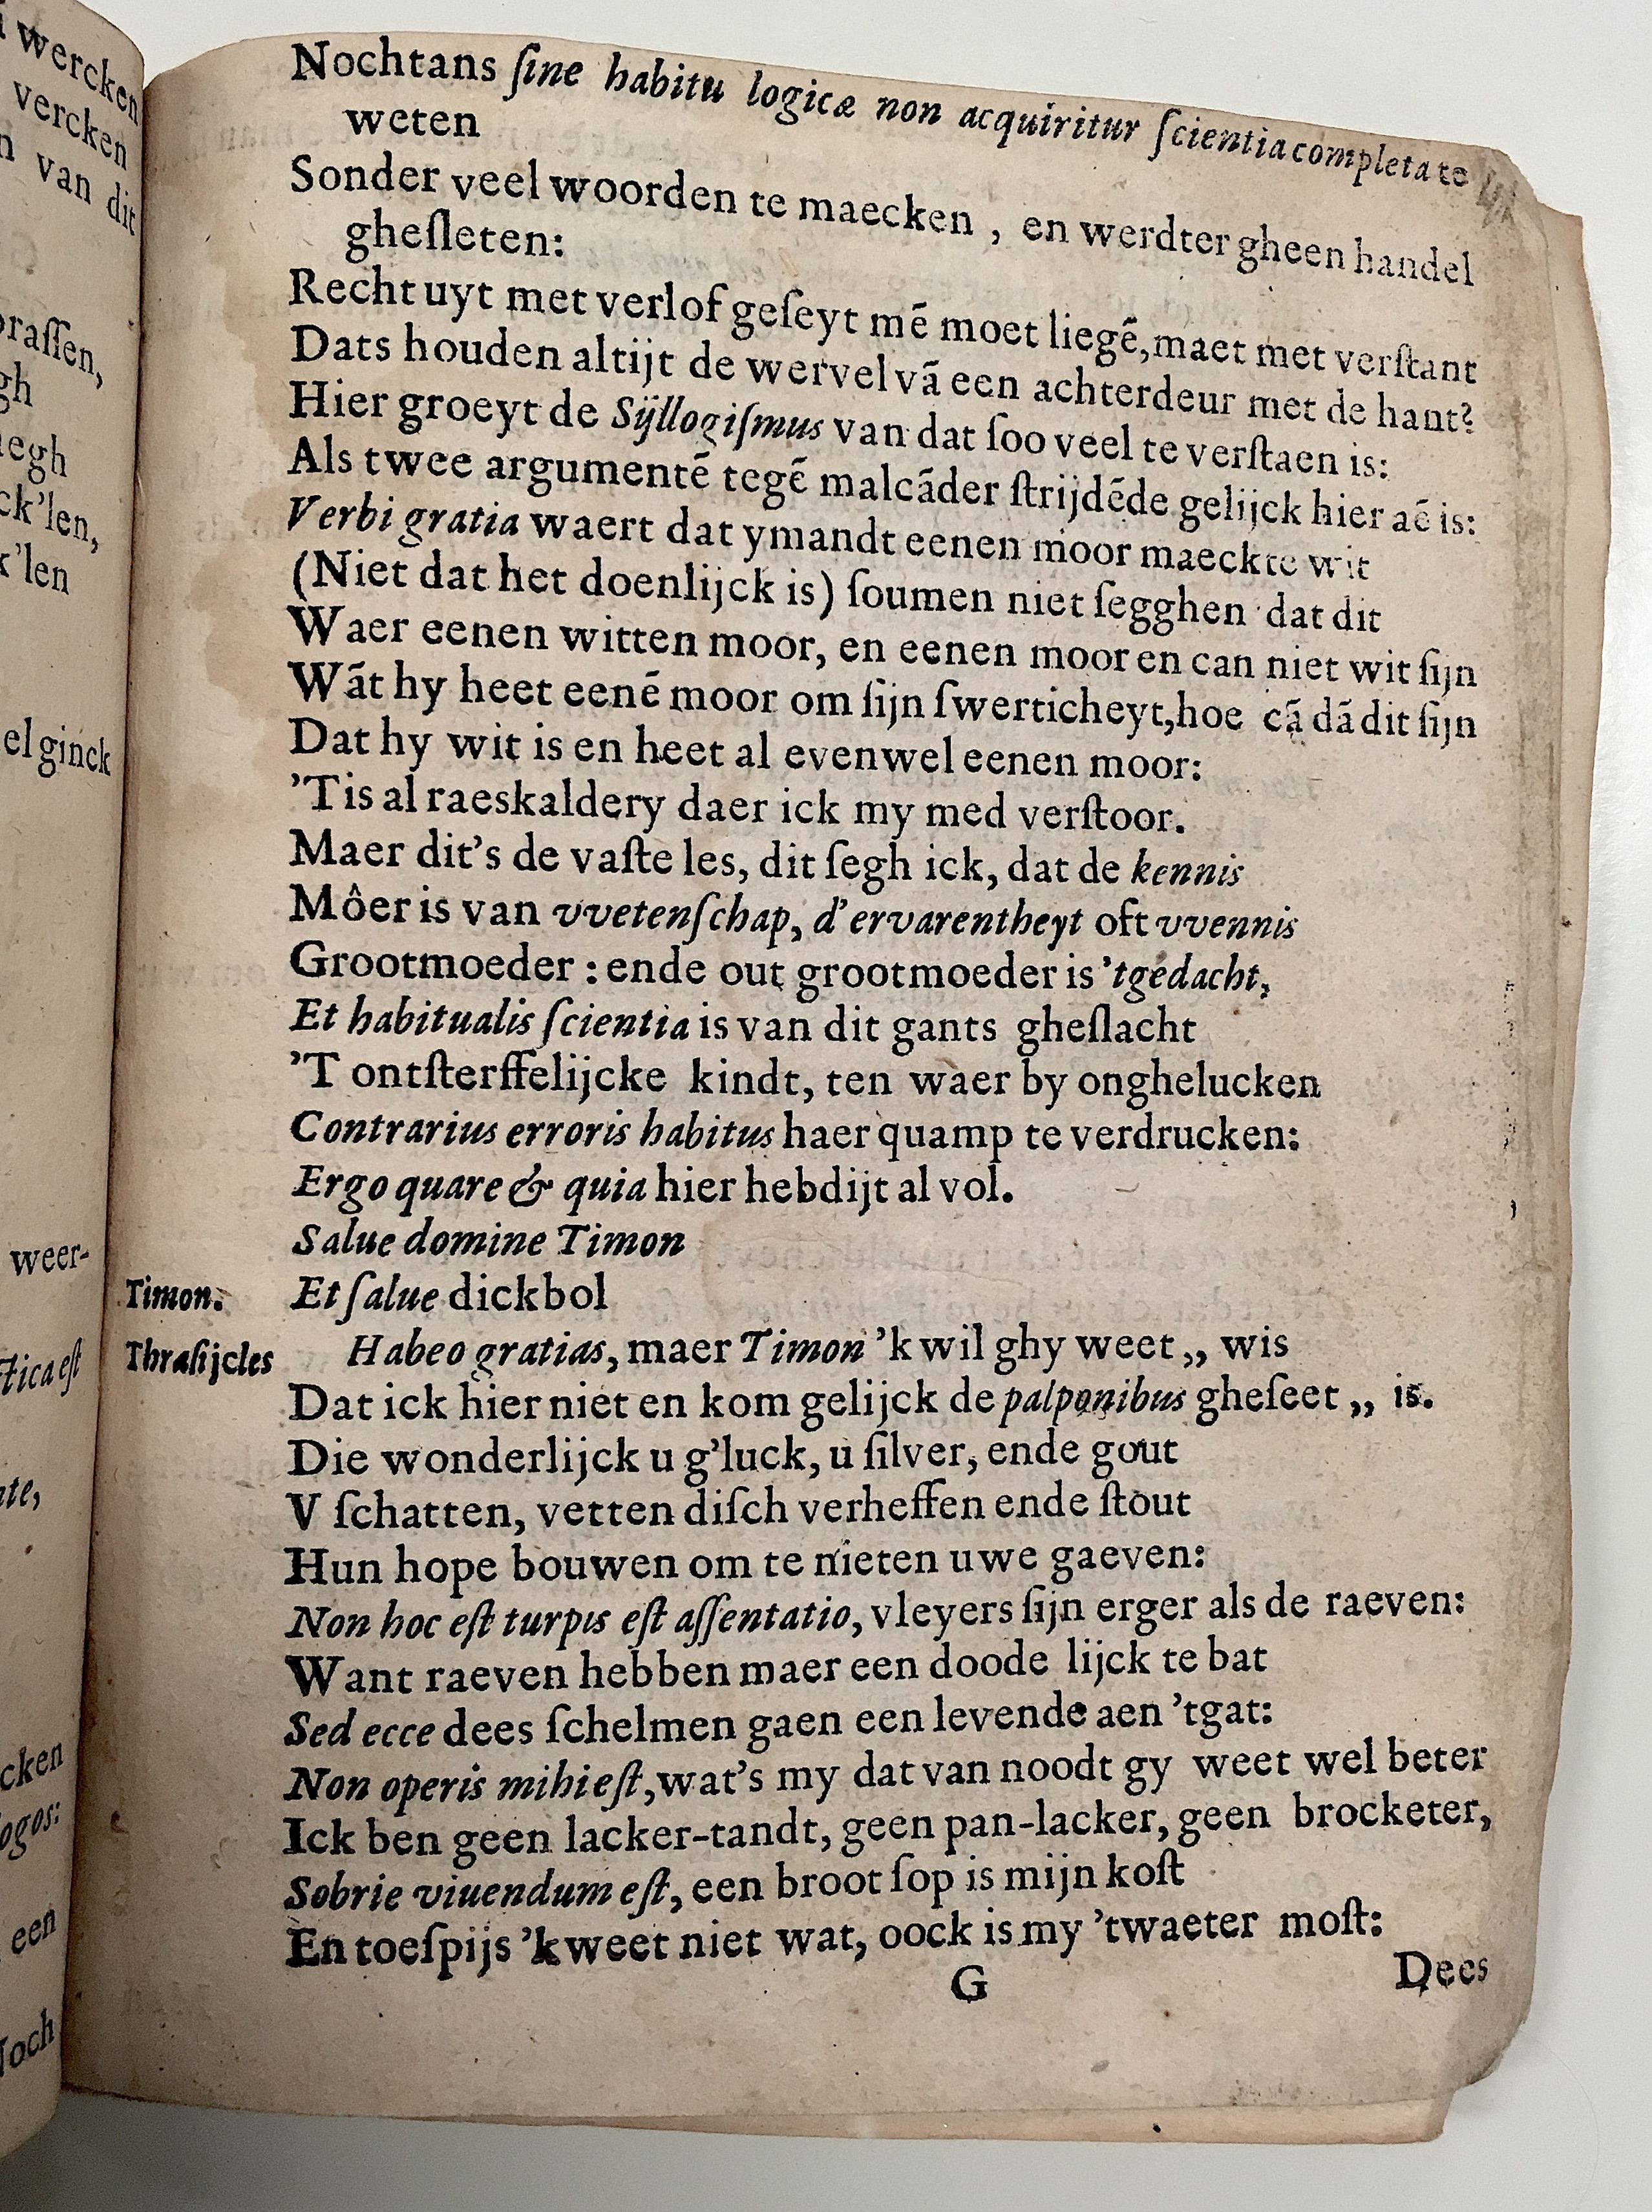 i wercken
vercken
n van dit
praſſen,
gh
negh
ck'len,
k'len
el ginck
weer-
ctica eſt
nte,
cken
ogos:
een
Noch
Nochtans ſine habitu logicæ non acquiritur ſcientia completa te
weten
Sonder veel woorden te maecken , en werdter gheen handel
gheſleten:
Recht uyt met verlof geſeyt mē moet liegē, maet met verſtant
Dats houden altijt de wervel vā een achterdeur met de hant?
Hier groeyt de Sÿllogiſmus van dat ſoo veel te verſtaen is:
Als twee argumentē tegē malcāder ſtrijdēde gelijck hier aē is:
Verbi gratia waert dat ymandt eenen moor maeckte wit
(Niet dat het doenlijck is) ſoumen niet ſegghen dat dit
Waer eenen witten moor, en eenen moor en can niet wit ſijn
Wāt hy heet eenē moor om ſijn ſwerticheyt, hoe cā dā dit ſijn
Dat hy wit is en heet al evenwel eenen moor:
'Tis al raeskaldery daer ick my med verſtoor.
Maer dit's de vaſte les, dit ſegh ick, dat de kennis
Môer is van vvetenſchap, d'ervarentheyt oft vvennis
Grootmoeder : ende out grootmoeder is 'tgedacht,
Et habitualis ſcientia is van dit gants gheſlacht
'T ontſterffelijcke kindt, ten waer by onghelucken
Contrarius erroris habitus haer quamp te verdrucken:
Ergo quare & quia hier hebdijt al vol.
Salue domine Timon
Timon. Et ſalue dickbol
Thraſijcles Habeo gratias, maer Timon 'k wil ghy weet „ wis
Dat ick hier niet en kom gelijck de palponibus gheſeet „ is.
Die wonderlijck u g'luck, u ſilver, ende gout
V ſchatten, vetten diſch verheffen ende ſtout
Hun hope bouwen om te nieten uwe gaeven:
Non hoc eſt turpis eſt aſſentatio, vleyers ſijn erger als de raeven:
Want raeven hebben maer een doode lijck te bat
Sed ecce dees ſchelmen gaen een levende aen 'tgat:
Non operis mihi eſt, wat's my dat van noodt gy weet wel beter
Ick ben geen lacker-tandt, geen pan-lacker, geen brocketer,
Sobrie viuendum eſt, een broot ſop is mijn koſt
En toeſpijs 'k weet niet wat, oock is my 'twaeter moſt:
G Dees